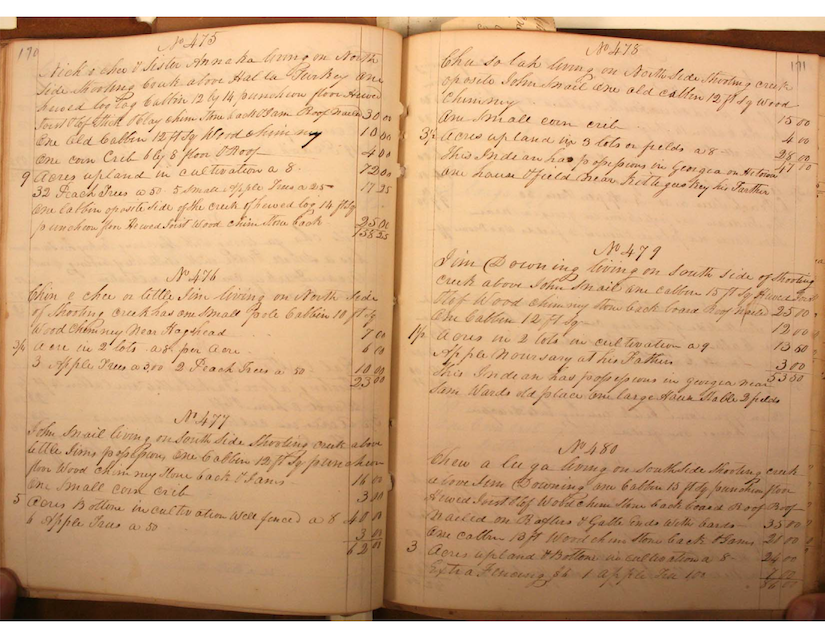 170
No 475
Nick o chee & Sister Anneka living on North
Side Shooting Creek above Half a Turkey One
hewed log Cabbin 12 by 14 puncheon floor Hewed
Joist loft Stick & Clay chim Stone back & Jam Roof Nailed 30 00
One Old Cabbin 12 ft Sq Wood chimney 10 00
One corn Crib 6 by 8 floor & Roof 4 00
9 Acres upland in cultivation a 8 72 00
32 Peach Trees a 50 5 Small Apple Trees a 25 17 25
One Cabbin oposite Side of the creek of hewed log 14 ft Sq
puncheon floor Hewed Joist Wood chim Stone back 25 00
158 25
No 476
Chin e chee or little Jim living on North Side
of Shooting Creek has one Small Pole Cabbin 10 ft Sq
Wood Chimney Near Hogshead 7 00
Acre in 2 lots a 8 per Acre 6 00
3 Apple Trees a 3,00 2 Peach Trees a 50 10 00
23 00
No 477
John Snail living on South Side Shooting creek above
little Jims possessions One Cabbin 12 ft Sq puncheon
floor Wood chimney Stone back & Jams 16 00
One Small corn crib 3 00
5 Acres Bottom in cultivation Well fenced a 8 40 00
6 Apple Trees a 50 3 00
62 00
171
No 478
Chu so lah living on North Side Shooting creek
oposite John Snail one old cabbin 12 ft Sq Wood
chimney 15 00
One Small corn crib 4 00
3½ Acres upland in 3 lots or fields a 8 28 00
This Indian has possessions in Georgia on 47 00
one house & field Near his Farther
No 479
Jim Downing living on South side of Shooting
creek above John Snail one cabbin 15 ft Sq Hewed Joist
loft Wood chimney stone back board Roof Nailed 25 00
One Cabbin 12 ft Sq 12 00
1½ Acres in 2 lots in cultivation a 9 13 50
Apple Noursary at his Fathers 3 00
This Indian has possessions in Georgia near 53 50
Sam Wards old place one large House Stable 2 fields
No 480
Chew a lu ga living on South Side Shooting creek
above Jim Downing one Cabbin 15 ft Sq puncheon floor
Hewed Joist loft Wood chim Stone back board Roof
Nailed on & Gable ends With bords 35 00
One cabbin 13 ft Wood chim Stone back & Jams 20 00
3 Acres upland & Bottom in cultivation a 8 24 00
Extra Fencing 1 Apple Tree 100